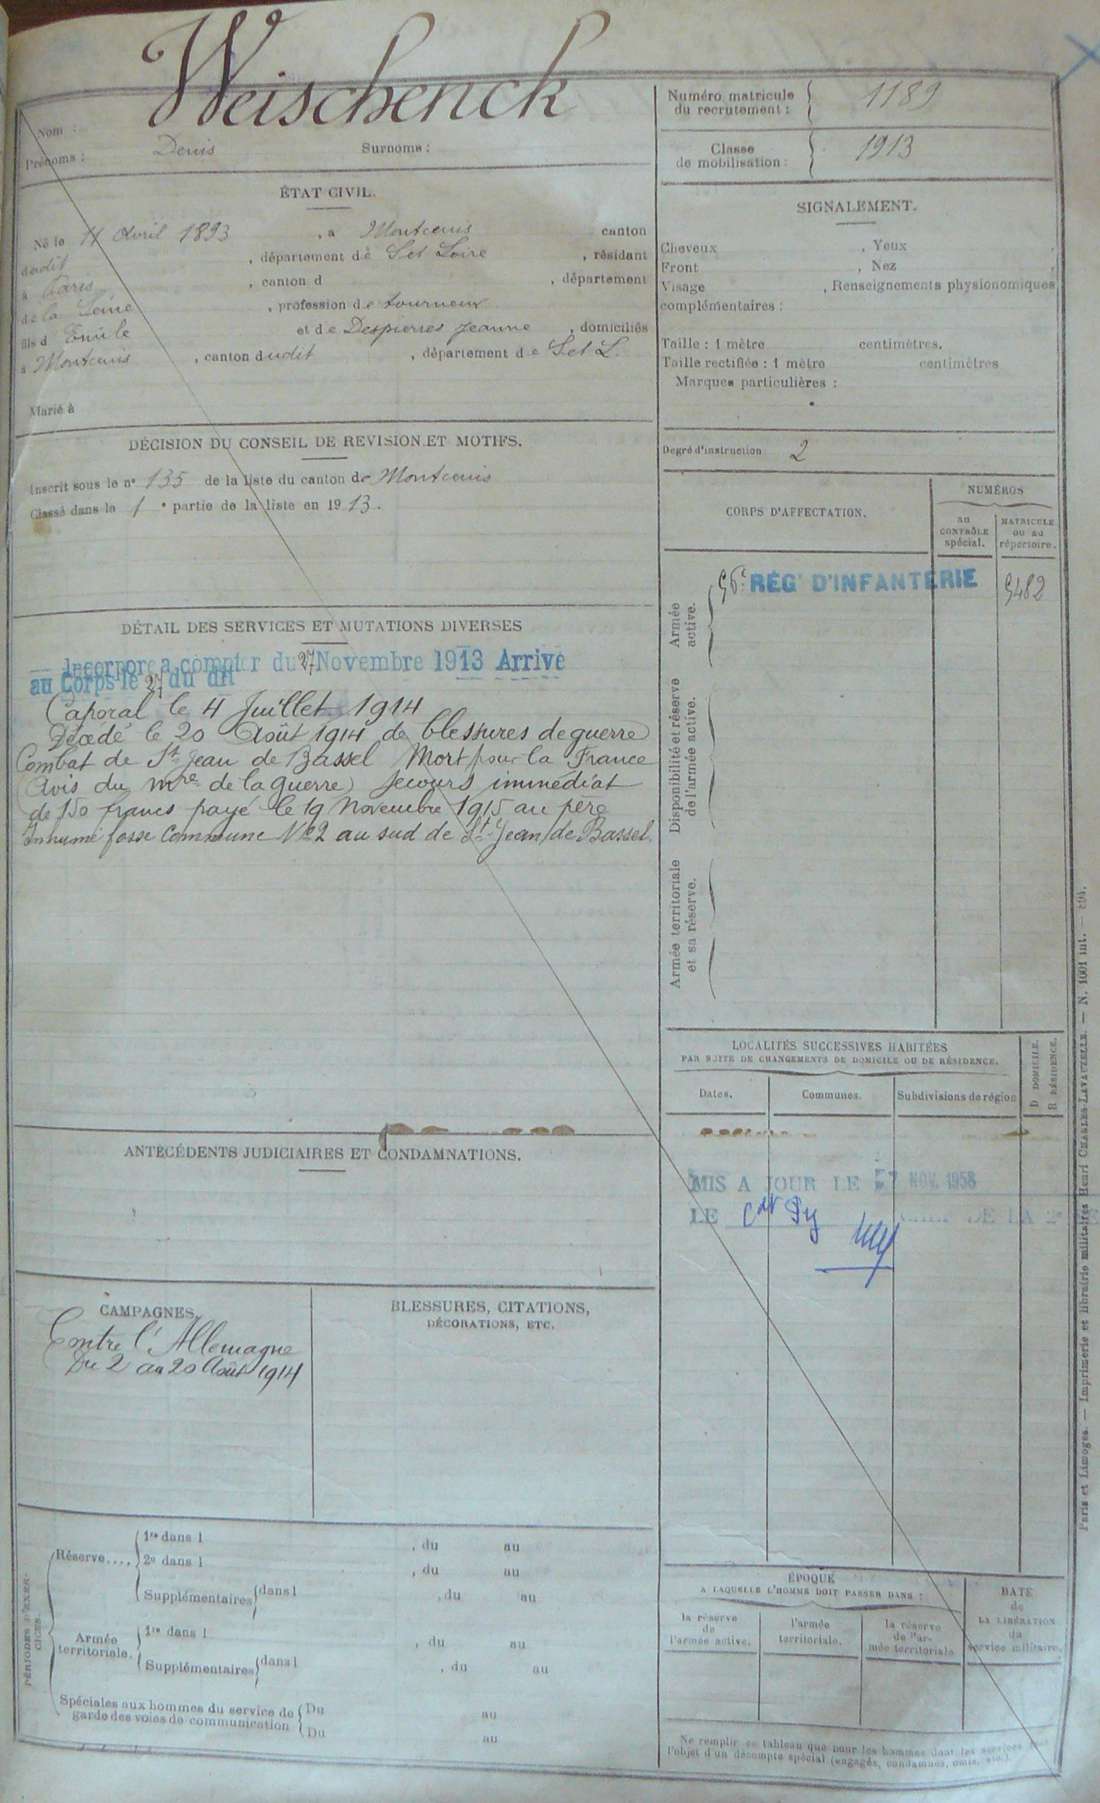 Nom : Weischenck
Prénoms : Denis Surnoms :
Numéro matricule
du recrutement : 1189
Classe
de mobilisation : 1913
ÉTAT CIVIL.
Né le 11 Avril 1893, à Montcenis canton
dudit, département de S et Loire, résidant
à Paris, canton d, département
de la Seine, profession de tourneur
fils d Emile et de Despierres Jeanne, domiciliés
à Montcenis, canton dudit, département de S et L.
Marié à
SIGNALEMENT.
Cheveux, Yeux
Front, Nez
Visage, Renseignements physionomiques
complémentaires :
Taille : 1 mètre centimètres.
Taille rectifiée : 1 mètre centimètres
Marques particulières :
Degré d'instruction 2
DÉCISION DU CONSEIL DE REVISION ET MOTIFS.
Inscrit sous le n° 135 de la liste du canton de Montcenis
Classé dans la 1e partie de la liste en 1913.
CORPS D'AFFECTATION.
NUMÉROS
AU
CONTRÔLE
spécial.
MATRICULE
OU AU
répertoire.
Armée
active.
56e REGt D'INFANTERIE 5482
Disponibilité et réserve
de l'armée active.
Armée territoriale
et sa réserve.
DÉTAIL DES SERVICES ET MUTATIONS DIVERSES
Incorporé à compter du 27 Novembre 1913 Arrivé
au Corps le 27 du dit
Caporal le 4 Juillet 1914
Décédé le 20 Août 1914 de blessures de guerre
Combat de St Jean de Bassel Mort pour la France
(Avis du mre de la guerre) Secours immédiat
de 150 francs payé le 19 Novembre 1915 au père
Inhumé fosse commune No 2 au sud de St Jean de Bassel.
LOCALITÉS SUCCESSIVES HABITÉES
PAR SUITE DE CHANGEMENTS DE DOMICILE OU DE RÉSIDENCE.
Dates.
Communes.
Subdivisions de région
D DOMICILE.
R RÉSIDENCE.
MIS A JOUR LE 7 NOV. 1958
LE DE LA
ANTÉCÉDENTS JUDICIAIRES ET CONDAMNATIONS.
CAMPAGNES
Contre l'Allemagne
Du 2 au 20 Août 1914
BLESSURES, CITATIONS,
DÉCORATIONS, ETC.
PÉRIODES D'EXER-
CICES.
Réserve....
1re dans l, du au
2e dans l, du au
Supplémentaires dans l, du au
Armée
territoriale.
1re dans l, du au
Supplémentaires dans l, du au
Spéciales aux hommes du service de
garde des voies de communication
Du au
Du au
ÉPOQUE
A LAQUELLE L'HOMME DOIT PASSER DANS :
la réserve
de
l'armée active.
l'armée
territoriale.
la réserve
de l'ar-
mée territoriale
DATE
de
LA LIBÉRATION
du
service militaire.
Ne remplir ce tableau que pour les hommes dont les services font
l'objet d'un décompte spécial (engagés, condamnés, omis, etc.).
Paris et Limoges. — Imprimerie et librairie militaires Henri CHARLES-LAVAUZELLE. — N. 1001 int. —